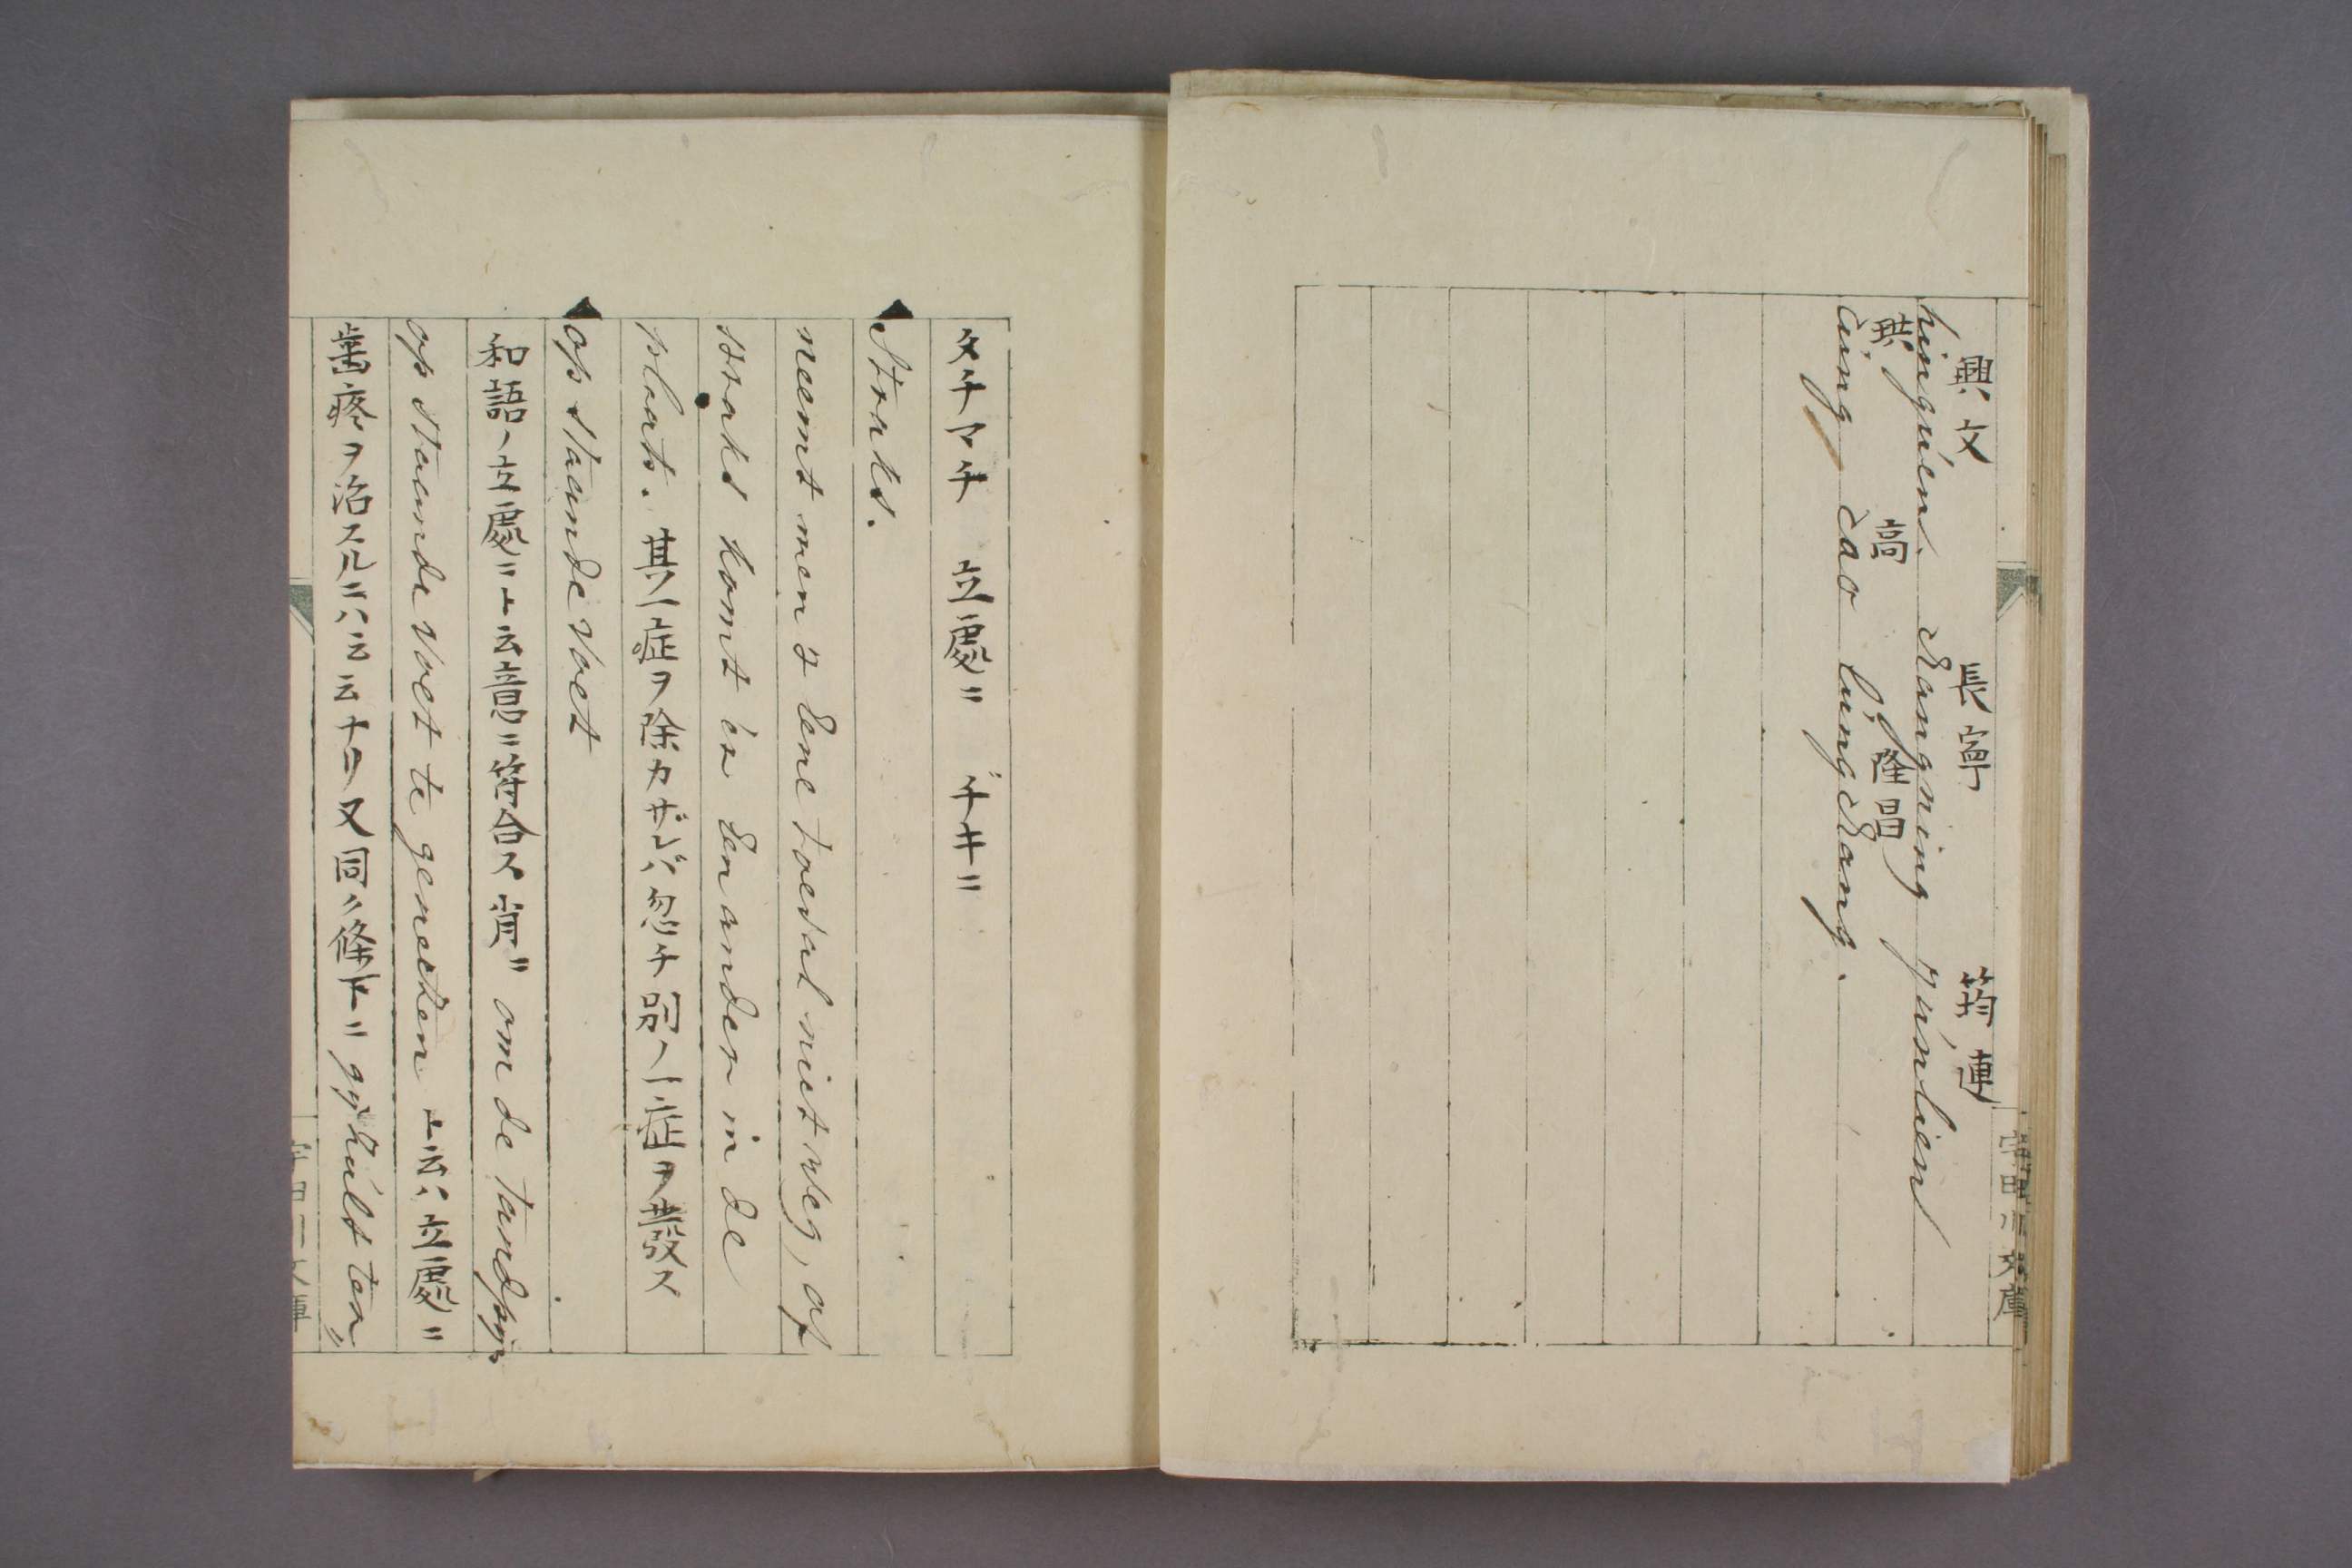 興文 長寧 筠連
hingúen. changning yúnlien
珙 高 隆昌
cung cao lúngchang.
宇田川文庫
タチマチ 立處ニ ヂキニ
Straks.
neemt men 't eene toeval niet weg, of
straks komt 'er een ander in de
plaats. 其ノ一症ヲ除カザレバ忽チ別ノ一症ヲ發ス
op staande voet
和語ノ立處ニト云意ニ符合ス肖ニ om de tandpyn
op staande voet te geneeken ト云ハ立處ニ
歯疼ヲ治スルニハ云云ナリ又同ノ條下ニ gy zúlt ten